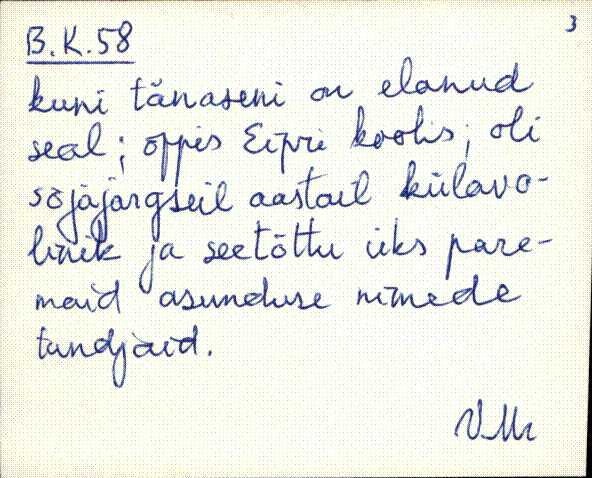 3
B.K.58
kuni tänaseni on elanud
seal; õppis Eipri koolis; oli
sõjajärgseil aastail külavo-
linik ja seetõttu üks pare-
maid asunduse nimede
tundjaid.